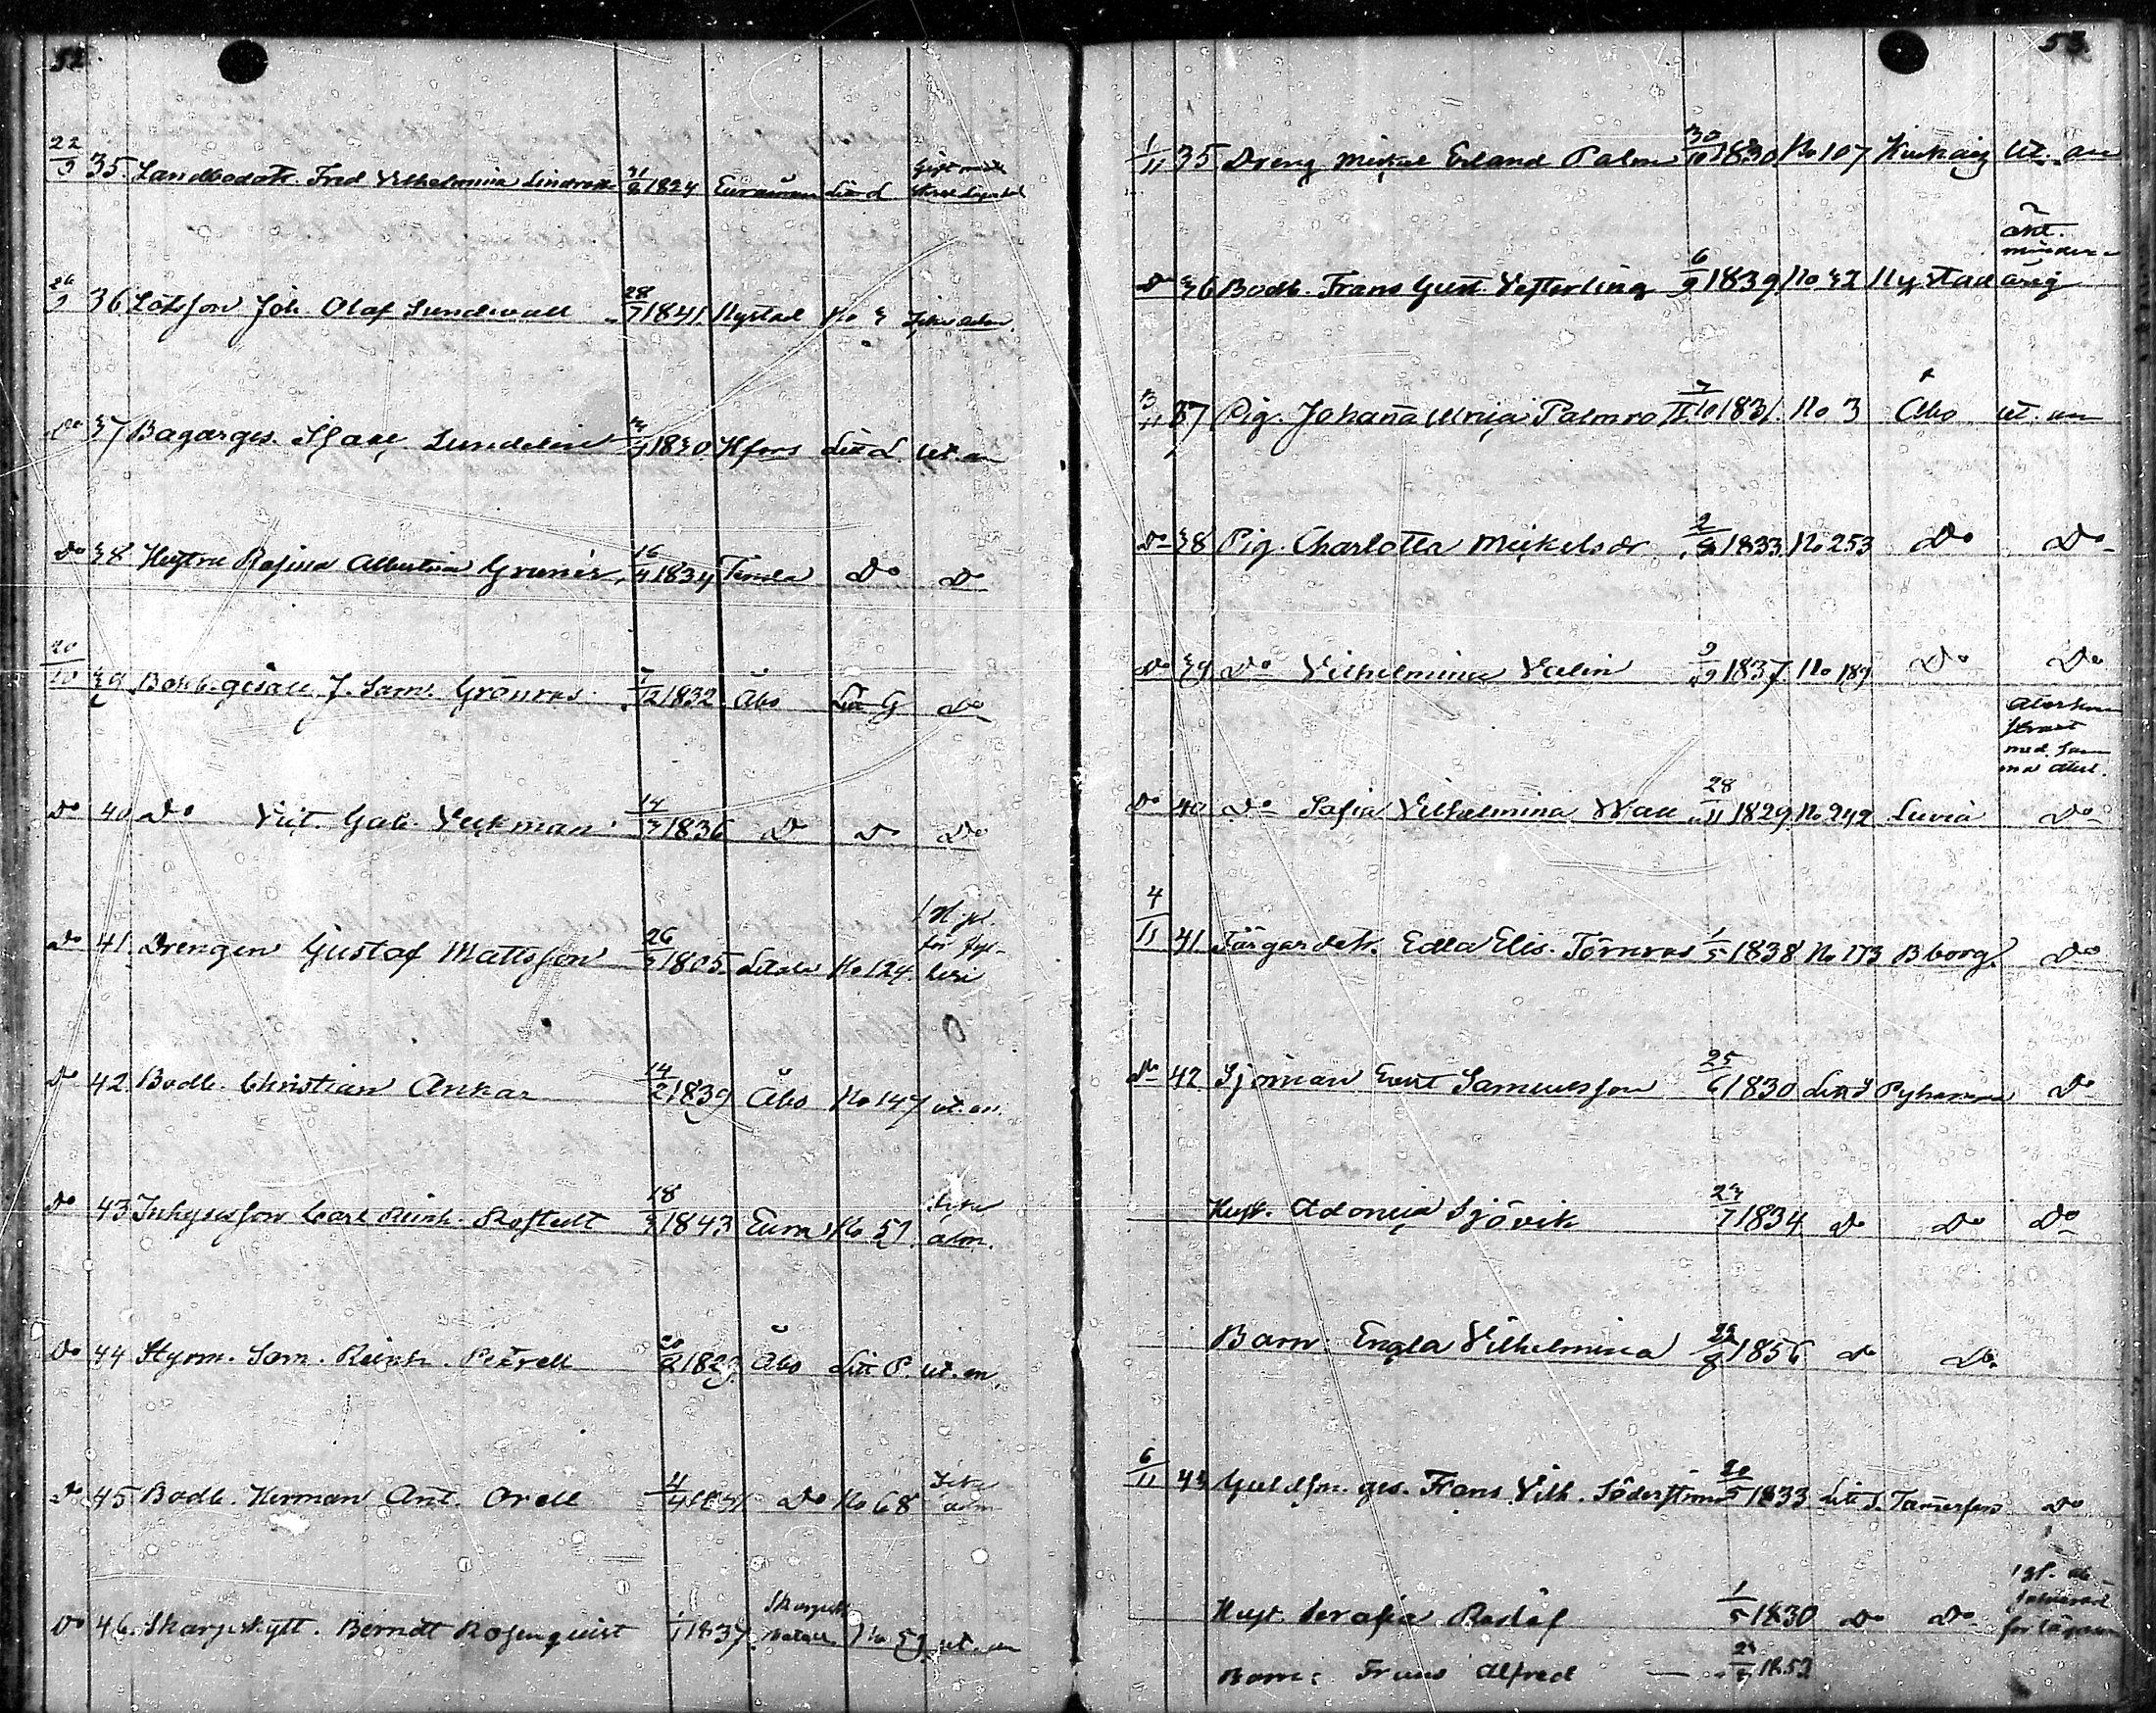 52.
22/9 35 Landbodotr. Fred Vilhelmina Lindroth 1824 Euraåminne Litt d Gift med
26/9 36 Lotsson Joh. Olaf Sundwall 28/7 1841 Nystad No 3
Do 37 Bagarges. Isaac Lundelin 1830 Hfors Litt L. ut. an
Do 38 Hustru Rosina Albertina Grunér 16/4 1834 Temela Do Do
20/10 39 Bokb. gesäll J. Sam. Grönroos 1/12 1832 Åbo Litt G Do
Do 40 Do Vict. Gab. Veckman 14/3 1836 Do Do Do
Do 41 Drengen Gustaf Mattsson 26/3 1805 Letala No 124 för fyl-
leri
Do 42 Bodb. Christian Ankar 14/2 1839 Åbo No 147 ut. an.
Do 43 Inhysesson Carl Reinh. Rostedt 18/3 1843 Eura No 57 icke
adm.
Do 44 Styrm. Sam. Reinh. Petrell 20/2 1829 Åbo Litt P. ut. an.
Do 45 Bodb. Herman Ant. Orell 4/4 1841 Do No 68 Icke
adm
Do 46 Skarpskytt. Berndt Rosenquist 1/1 1837 Skarpsk
Batall. No 59 ut. an
53.
1/11 35 Dreng Mickel Erland Palm 30/10 1830 No 107 ut. an
Do 36 Bodb. Frans Gust. Vesterling 6/9 1839 No 32 Nystad
ant.
minder-
årig
3/11 37 Pig. Johanna Ulrica Palmroos 7/10 1831. No 3 Åbo ut. an
Do 38 Pig. Charlotta Mickelsdr 2/8 1833 No 253 Do Do
Do 39 Do Vilhelmina Valin 9/9 1837 No 189 Do Do
Återkom
strax
med sam
ma attest.
Do 40 Do Sofia Vilhelmina Wall 28/11 1829 No 242 Luvia Do
4/11 41 Färgaredotr. Edla Elis. Törnroos 1/5 1838 No 173 Bborg. Do
Do 42 Sjöman Evert Samuelsson 25/6 1830 Litt S Pyhämaa Do
Hust. Adonia Sjövik 23/7 1834 Do Do Do
Barn Engla Vilhelmina 1856 Do Do
6/11 43 Guldsm. ges. Frans Vilh. Söderström 20/5 1833 Litt S. Tammerfors Do
Hust. Serafia Roslöf 1/5 1830 Do Do
Barn: Frans Alfred 1852